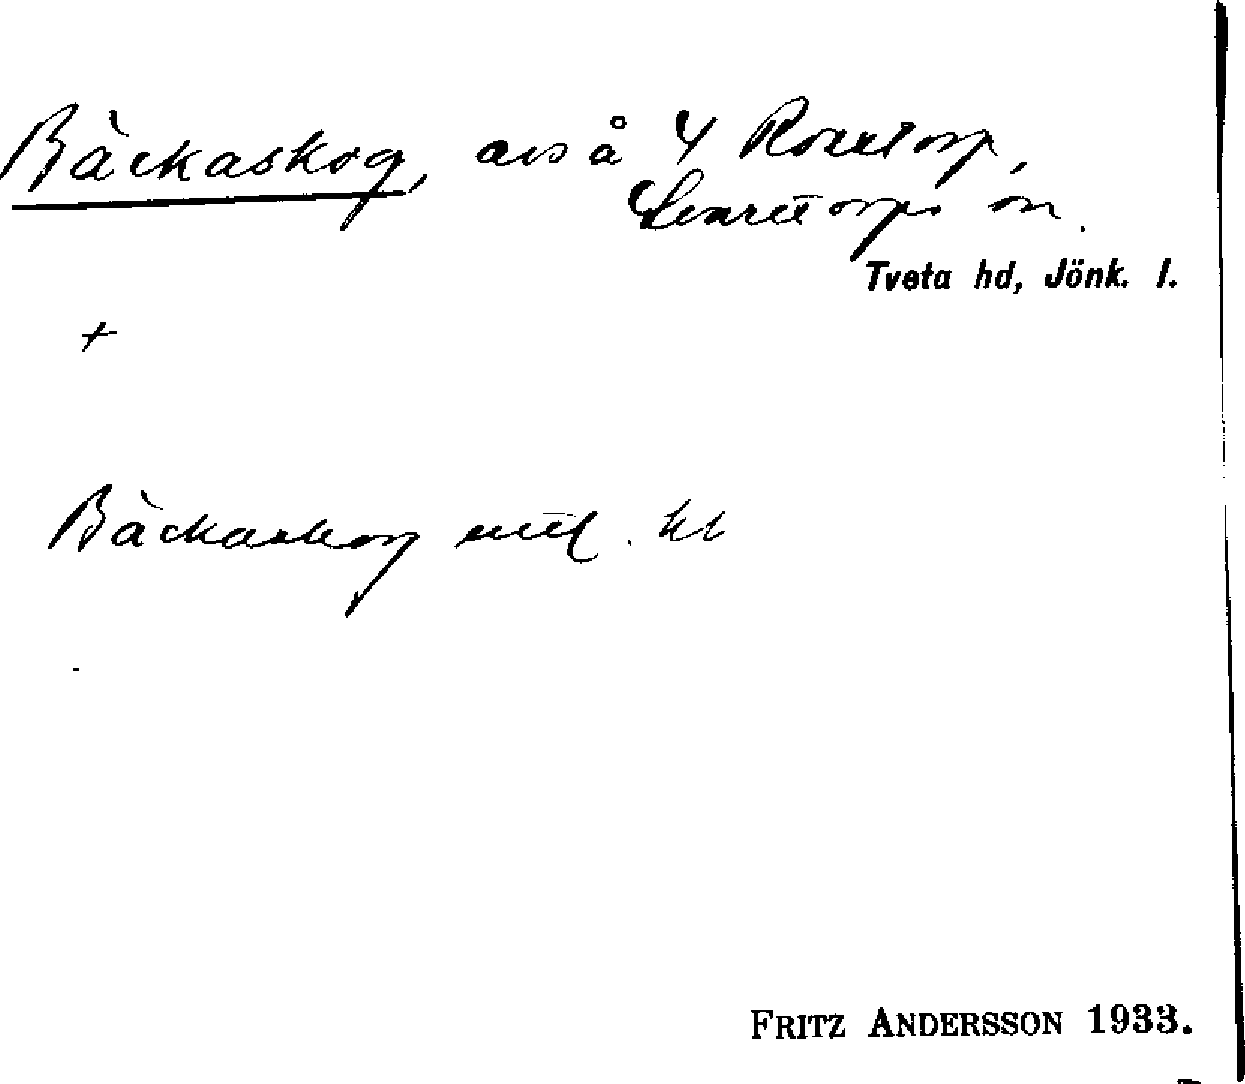 Bäckaskog, avs å 4 Rosentorp,
Lekeryds sn.
Tveta hd, Jönk. l.
+
Bäckaskog
FRITZ ANDERSSON 1933.